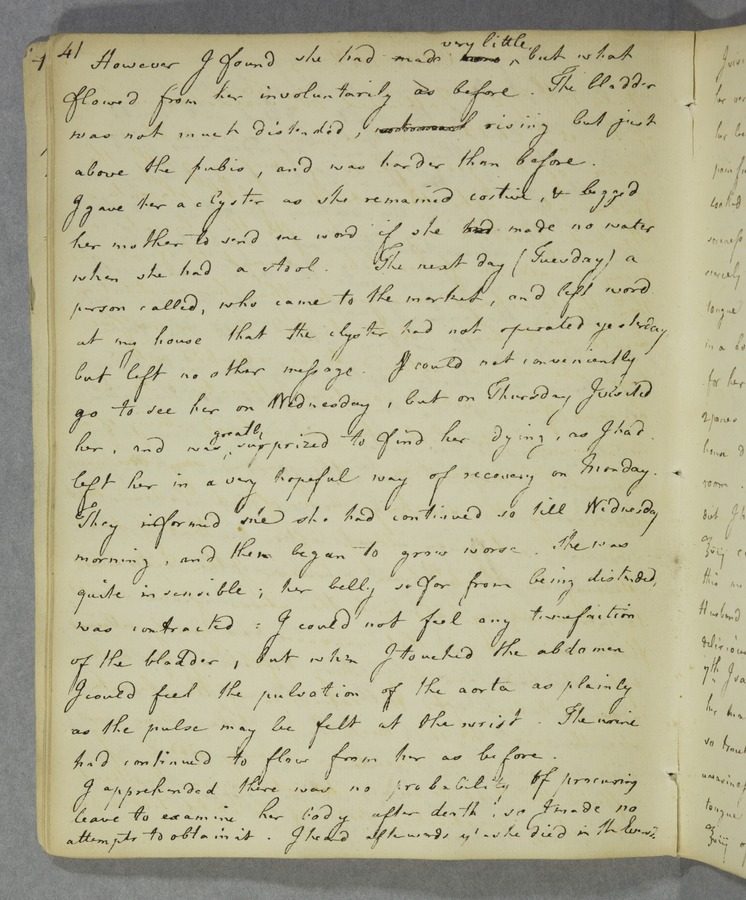 41
However I found she had made very little, but what
flowed from her involuntarily as before. The bladder
was not much distended, rising but just
above the pubis, and was harder than before.
I gave her a clyster as she remained costive, & begged
her mother to send me word if she had made no water
when she had a stool. The next day (Tuesday) a
person called, who came to the market, and left word
at my house that the clyster had not operated yesterday
but left no other message. I could not conveniently
go to see her on Wednesday, but on Thursday I visited
her, and was greatly surprized to find her dying, as I had
left her in a very hopeful way of recovery on Monday.
They informed me she had continued so till Wednesday
morning, and then began to grow worse. She was
quite insensible; her belly so far from being distended,
was contracted: I could not feel any tumefaction
of the bladder, but when I touched the abdomen
I could feel the pulsation of the aorta as plainly
as the pulse may be felt at the wrist. The urine
had continued to flow from her as before.
I apprehended there was no probability of procuring
leave to examine her body after death: so I made no
attempts to obtain it. I heard afterwards yt she died in the